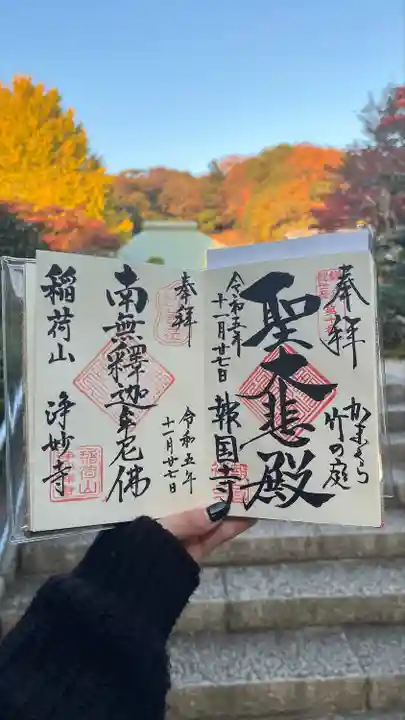 奉拝
かまくら
竹の庭
聖大悲殿
令和五年
十一月廿七日
報国寺
奉拝
令和五年
十一月廿七日
南無釋迦牟尼佛
稲荷山
浄妙寺
稲荷山